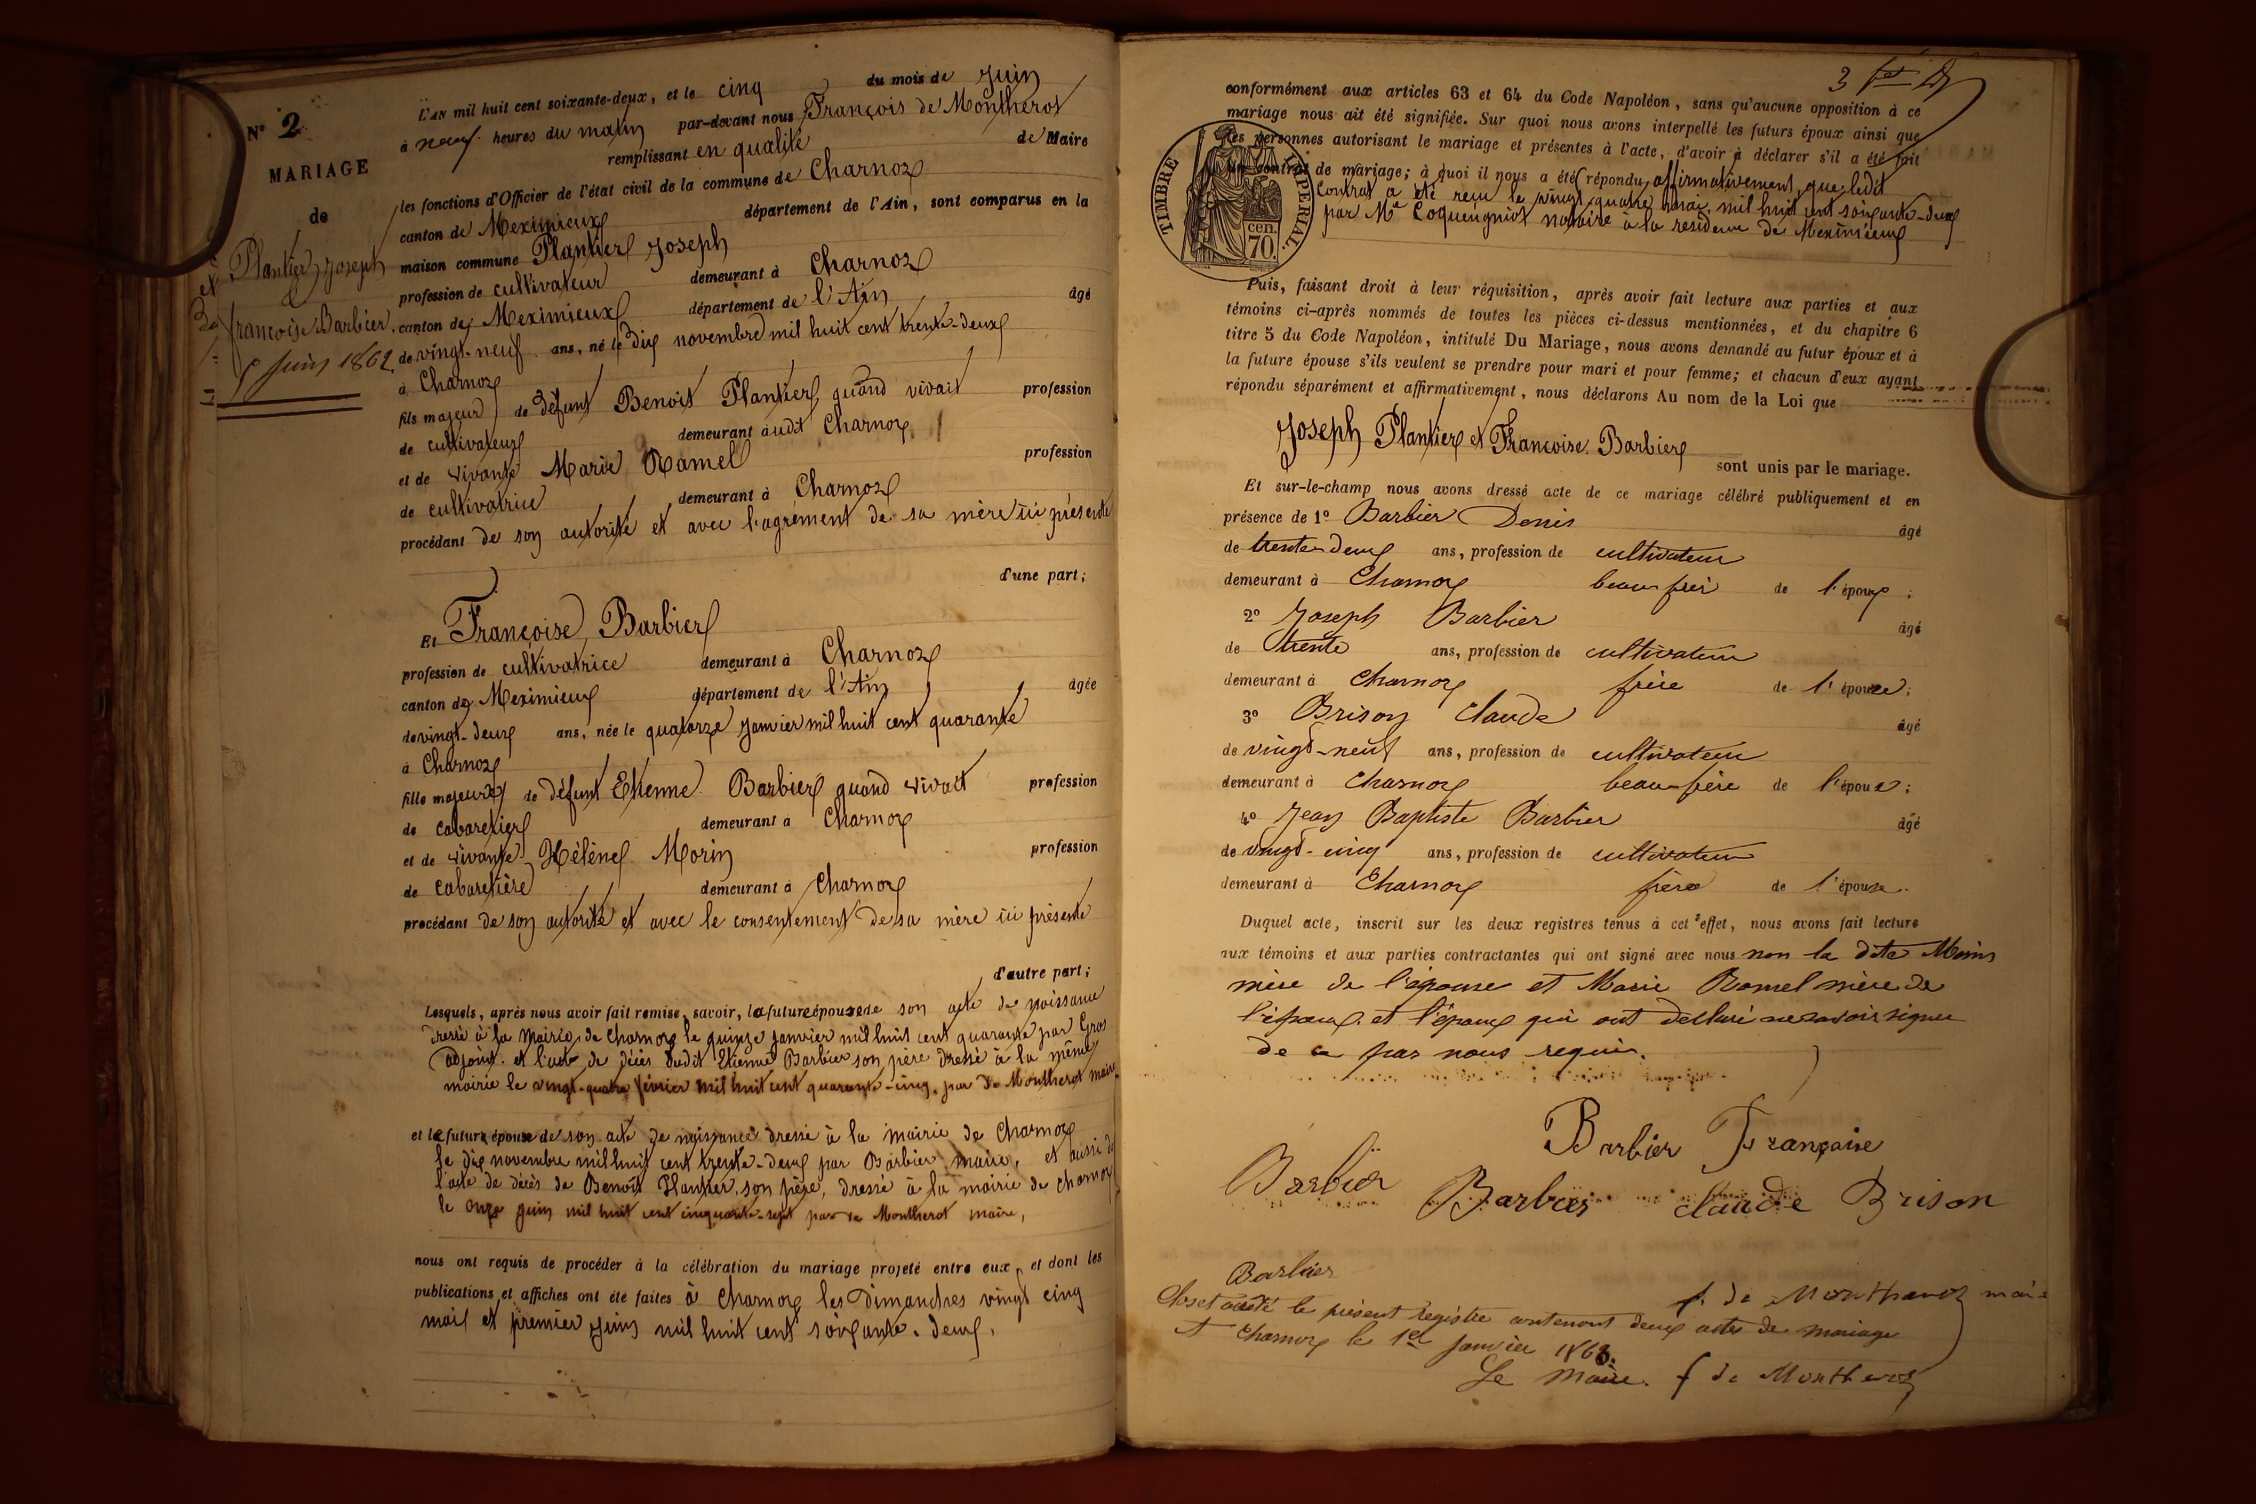 N° 2
MARIAGE
de
Plantier Joseph
et
Françoise Barbier.
5 Juin 1862.
L'AN mil huit cent soixante-deux, et le cinq du mois de Juin
à neuf heures du matin par-devant nous François de Montherot
remplissant en qualité de Maire
les fonctions d'Officier de l'état civil de la commune de Charnoz
canton de Meximieux département de l'Ain, sont comparus en la
maison commune Plantier Joseph
profession de cultivateur demeurant à Charnoz
canton de Meximieux département de l'Ain âgé
de vingt-neuf ans, né le dix novembre mil huit cent trente-deux
à Charnoz
fils majeur de défunt Benoit Plantier, quand vivait profession
de cultivateur demeurant audit Charnoz
et de vivante Marie Ramel profession
de cultivatrice demeurant à Charnoz
procédant de son autorité et avec l'agrément de sa mère ici présente
d'une part;
Et Françoise Barbier
profession de cultivatrice demeurant à Charnoz
canton de Meximieux département de l'Ain âgée
de vingt-deux ans, née le quatorze janvier mil huit cent quarante
à Charnoz
fille majeure de défunt Etienne Barbier quand vivait profession
de cabaretier demeurant à Charnoz
et de vivante Hélène Morin profession
de cabaretière demeurant à Charnoz
procédant de son autorité et avec le consentement de sa mère ici présente
d'autre part;
Lesquels, après nous avoir fait remise, savoir, la future épouse de son acte de naissance
dressé à la Mairie de Charnoz le quinze janvier mil huit cent quarante par Gros
adjoint et l'acte de décès dudit Etienne Barbier son père dressé à la même
mairie le vingt-quatre février mil huit cent quarante-cinq, par de Montherot maire
et le future épouse de son acte de naissance dressé à la mairie de Charnoz
le dix novembre mil huit cent trente-deux par Barbier maire, et aussi de
l'acte de décès de Benoît Plantier son père, dressé à la mairie de Charnoz
le onze juin mil huit cent cinquante-sept par de Montherot maire,
nous ont requis de procéder à la célébration du mariage projeté entre eux, et dont les
publications et affiches ont été faites à Charnoz les Dimanches vingt cinq
mai et premier juin mil huit cent soixante-deux.
3
conformément aux articles 63 et 64 du Code Napoléon, sans qu'aucune opposition à ce
mariage nous ait été signifiée. Sur quoi nous avons interpellé les futurs époux ainsi que
les personnes autorisant le mariage et présentes à l'acte, d'avoir à déclarer s'il a été fait
un contrat de mariage; à quoi il nous a été répondu affirmativement, que ledit
Contrat a été reçu le vingt quatre mai mil huit cent soixante-deux
par Me Coqueugniot notaire à la résidence de Meximieux
TIMBRE IMPERIAL.
cen.
70.
Puis, faisant droit à leur réquisition, après avoir fait lecture aux parties et aux
témoins ci-après nommés de toutes les pièces ci-dessus mentionnées, et du chapitre 6
titre 5 du Code Napoléon, intitulé Du Mariage, nous avons demandé au futur époux et à
la future épouse s'ils veulent se prendre pour mari et pour femme; et chacun d'eux ayant
répondu séparément et affirmativement, nous déclarons Au nom de la Loi que
Joseph Plantier et Françoise Barbier
sont unis par le mariage.
Et sur-le-champ nous avons dressé acte de ce mariage célébré publiquement et en
présence de 1° Barbier Denis âgé
de trente-deux ans, profession de cultivateur
demeurant à Charnoz beau-frèr de l'époux;
2° Joseph Barbier âgé
de trente ans, profession de cultivateur
demeurant à Charnoz frère de l'épouse;
3° Brison Claude âgé
de vingt-neuf ans, profession de cultivateur
demeurant à Charnoz beau-frère de l'épouse;
4° Jean Baptiste Barbier âgé
de vingt-cinq ans, profession de cultivateur
demeurant à Charnoz frère de l'épouse.
Duquel acte, inscrit sur les deux registres tenus à cet effet, nous avons fait lecture
aux témoins et aux parties contractantes qui ont signé avec nous non la dite Morin
mère de l'épouse et Marie Ramel mère de
l'époux et l'époux qui ont déclaré ne savoir signer
de ce par nous requis.
Barbier Françoise
Barbier Barbier Claude Brison
Barbier
f. de Montherot maire
Clos et arrêté le présent registre contenant deux actes de mariage
A Charnoz le 1er Janvier 1863.
Le Maire. f de Montherot